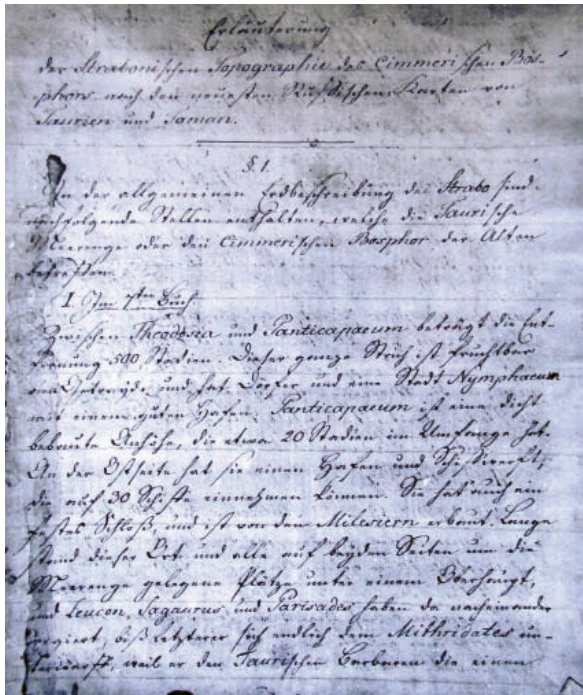 Erläuterung
der Strabonischen Topographie des Cimmerischen Bos-
phors nach den neuesten Russischen Karten von
Taurien und Taman.
§ 1.
In der allgemeinen Erdbeschreibung des Strabo sind
nachfolgende Stellen enthalten, welche die Taurische
Meerenge oder den Cimmerischen Bosphor der Alten
betreffen.
I. Im 7ten Buch.
Zwischen Theodosia und Panticapaeum beträgt die Ent-
fernung 500 Stadien. Dieser ganze Strich ist fruchtbar
an Getreyde und hat Dörfer und eine Stadt Nymphaeum
mit einem guten Hafen. Panticapaeum ist eine dicht
bebaute Anhöhe, die etwa 20 Stadien im Umfange hat.
An der Ostseite hat sie einen Hafen und Schiffwerft,
die auf 30 Schiffe einnehmen können. Sie hat auch ein
festes Schloß, und ist von den Milesiern erbaut. Lange
stand dieser Ort und alle auf beyden Seiten um die
Meerenge gelegene Plätze unter einem Oberhaupt,
und Leucon, Sagaurus und Parisades haben da nacheinander
regiert, biß letzterer sich endlich dem Mithridates un-
terwarf, weil er den Taurischen Barbaren die einen